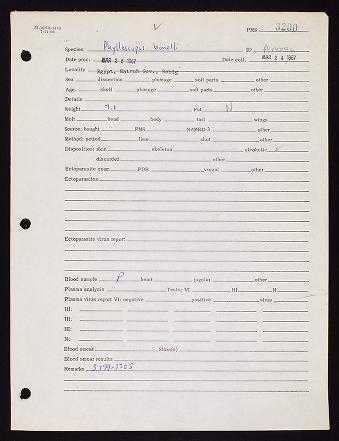 PMS 3200
Species Phylloscopus bonelli ID
Date proc. MAR 28 1967 Date coll. MAR 24 1967
Locality Egypt, Matruh Gov., Bahig
Sex dissection plumage soft parts other
Age skull plumage soft parts other
Details
Weight 7.1 Fat N
Molt head body tail wings
Source: bought PMS NAMRU-3 other
Method: netted lime shot other
Disposition: skin skeleton alcoholic ✓
discarded other
Ectoparasite exam PDR visual other
Ectoparasites
Ectoparasite virus report
Blood sample P heart jugular other
Plasma analysis Tests: VI HI N
Plasma virus report VI: negative positive virus
HI:
HI:
HI:
N:
Blood smear Stain(s)
Blood smear results
Remarks 3199-3205